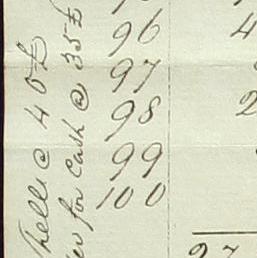 96 4
97
98 2
99
100
27
Thelli @ 40 £
for Cash @ 35 £